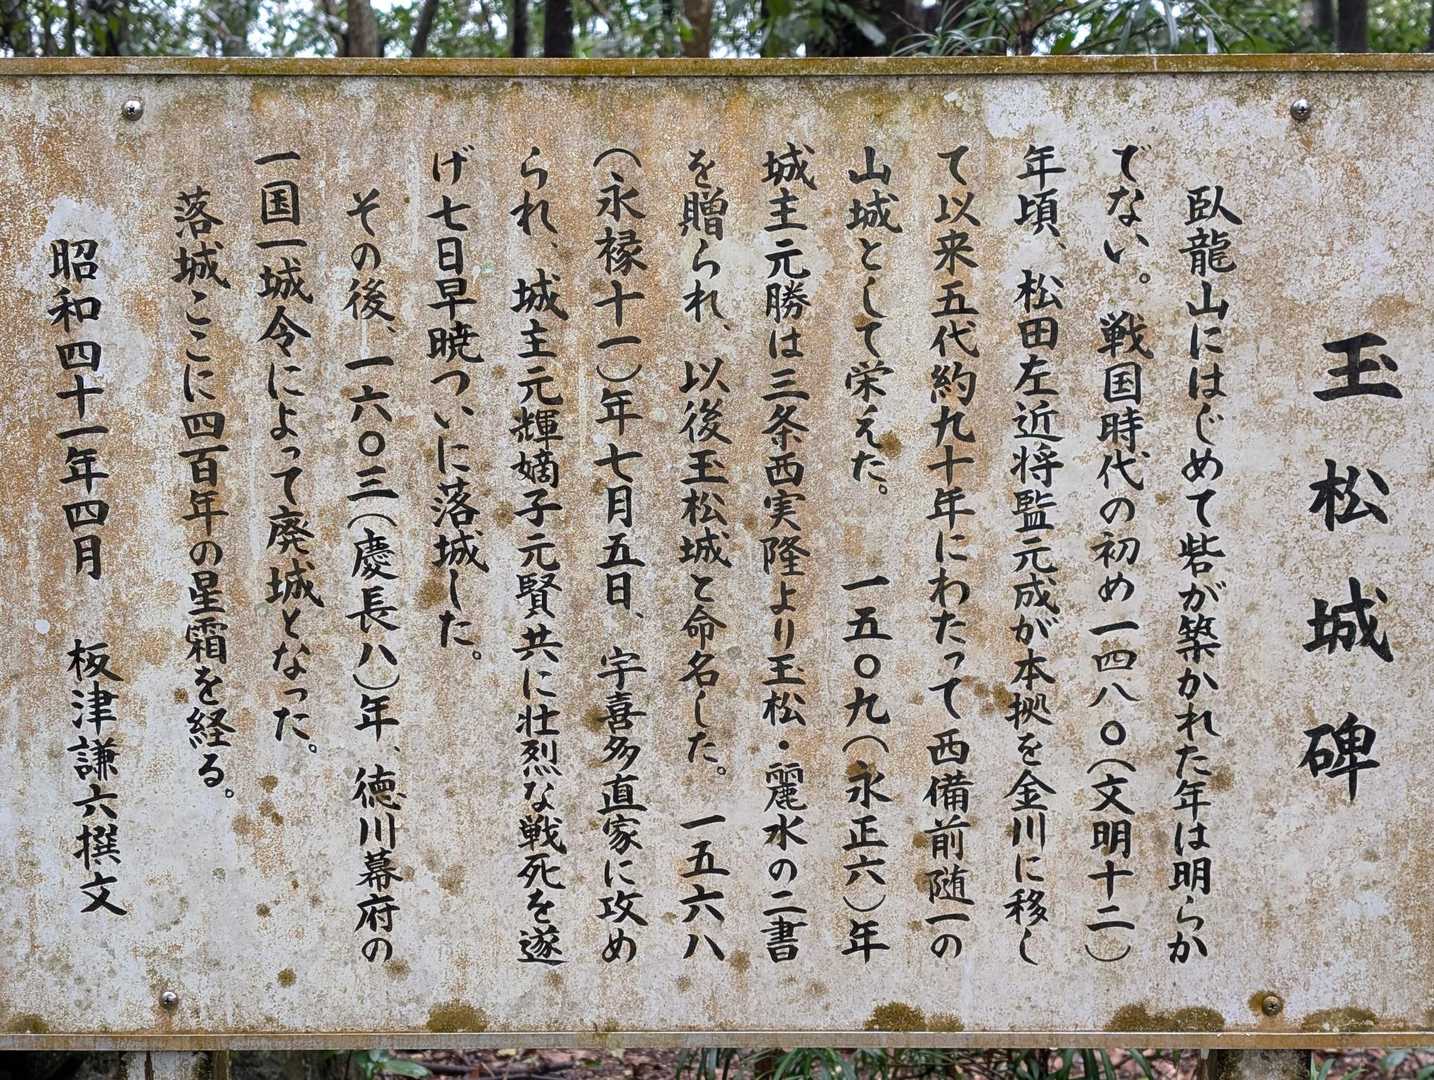 玉松城碑
臥龍山にはじめて砦が築かれた年は明らか
でない。戦国時代の初め一四八〇(文明十二)
年頃、松田左近将監元成が本拠を金川に移し
て以来五代約九十年にわたって西備前随一の
山城として栄えた。一五〇九(永正六)年
城主元勝は三条西実隆より玉松・麗水の二書
を贈られ、以後玉松城と命名した。一五六八
(永禄十一)年七月五日、宇喜多直家に攻め
られ、城主元輝嫡子元賢共に壮烈な戦死を遂
げ七日早暁ついに落城した。
その後、一六〇三(慶長八)年、徳川幕府の
一国一城令によって廃城となった。
落城ここに四百年の星霜を経る。
昭和四十一年四月 板津謙六撰文